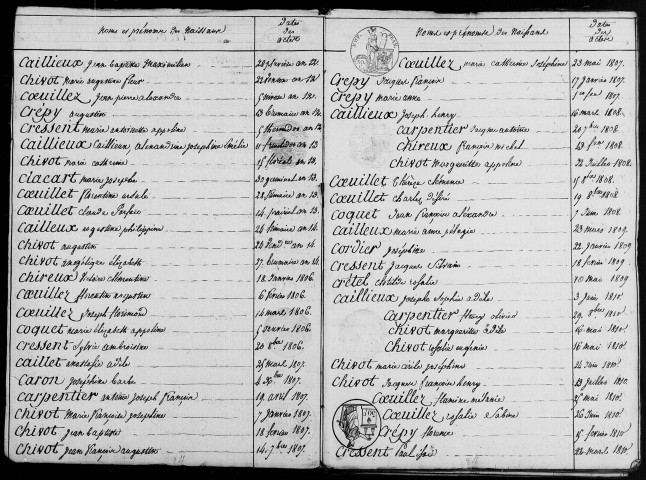 Noms et prénoms des Naissans
Dates des Actes
Caillieux jean baptiste maximilien 20 fevrier an 12.
Chivot marie augustine fleur 22 an 12
Cœuillez jean pierre alexandre 5 nivose an 12.
Crépy augustin 13 brumaire an 12
Cressent marie antoinette appoline 5 thermidor an 12
Caillieux alexandrine josephine an 12
Chivot marie catherine 15 floréal an 12.
Ciacart marie josephe 30 germinal an 13.
Cœuillet florentine ursule 28 frimaire an 13.
Cœuillet claude 14 prairial an 13.
Cailleux augustine philippine 24 frimaire an 14.
Chivot augustin 20 Vend.re an 14.
Chivot angélique élizabeth 27 brumaire an 14.
Chireux clémentine 18 Janvier 1806.
Cœuillez florentin augustin 6 fevrier 1806.
Cœuillez joseph florimond 14 mars 1806.
Coquet marie élizabeth appoline 5 fevrier 1806.
Cressent sylvie ambroisine 20 8bre 1806.
Caillet anastasie adèle 25 mars 1807.
Caron joséphine barbe 4 Xbre 1807.
Carpentier antoine joseph françois 19 avril 1807.
Chivot marie françoise josephine 7 janvier 1807.
Chivot jean baptiste 18 fevrier 1807.
Chivot jean françois augustin 14 7bre 1807.
Noms et prénoms des Naissans
Dates des Actes
Cœuillez marie catherine joséphine 23 mai 1807.
Crépy jacques françois 17 janvier 1807.
Crépy marie anne 1er fev 1807.
Caillieux joseph henry 16 mars 1808.
Carpentier jacques antoine 20 7bre 1808.
Chireux françois michel 13 fev 1808.
Chivot marguerite appoline 22 Juillet 1808.
Cœuillet thérèse clémence 15 8bre 1808.
Cœuillet charles désiré 19 8bre 1808.
Coquet jean françois alexandre 7 juin 1808.
Cailleux marie anne pélagie 23 mars 1809.
Cordier joséphine 22 janvier 1809
Cressent jacques 18 fevrier 1809.
Crétel clotilde rosalie 10 mai 1809
Caillieux josephe sophie adèle 3 juin 1810.
Carpentier henry olivier 29 8bre 1810.
Chivot marguerite adèle 16 mai 1810.
Chivot rosalie eugénie 16 mai 1810.
Chivot marie cécile joséphine 24 juin 1810.
Chivot jacques françois henry 23 Juillet 1810.
Cœuillez flamine mélanie 25 mai 1810.
Cœuillez rosalie Sabine 26 juin 1810.
Crépy florence 15 fevrier 1810.
Cressent Paul 22 mars 1810.